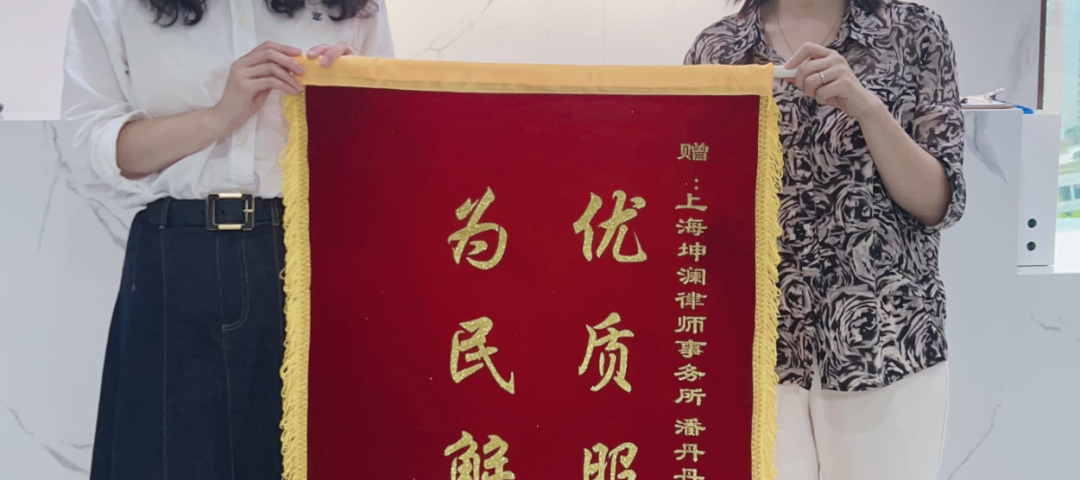 赠：上海坤澜律师事务所 潘丹丹
优质服
为民解